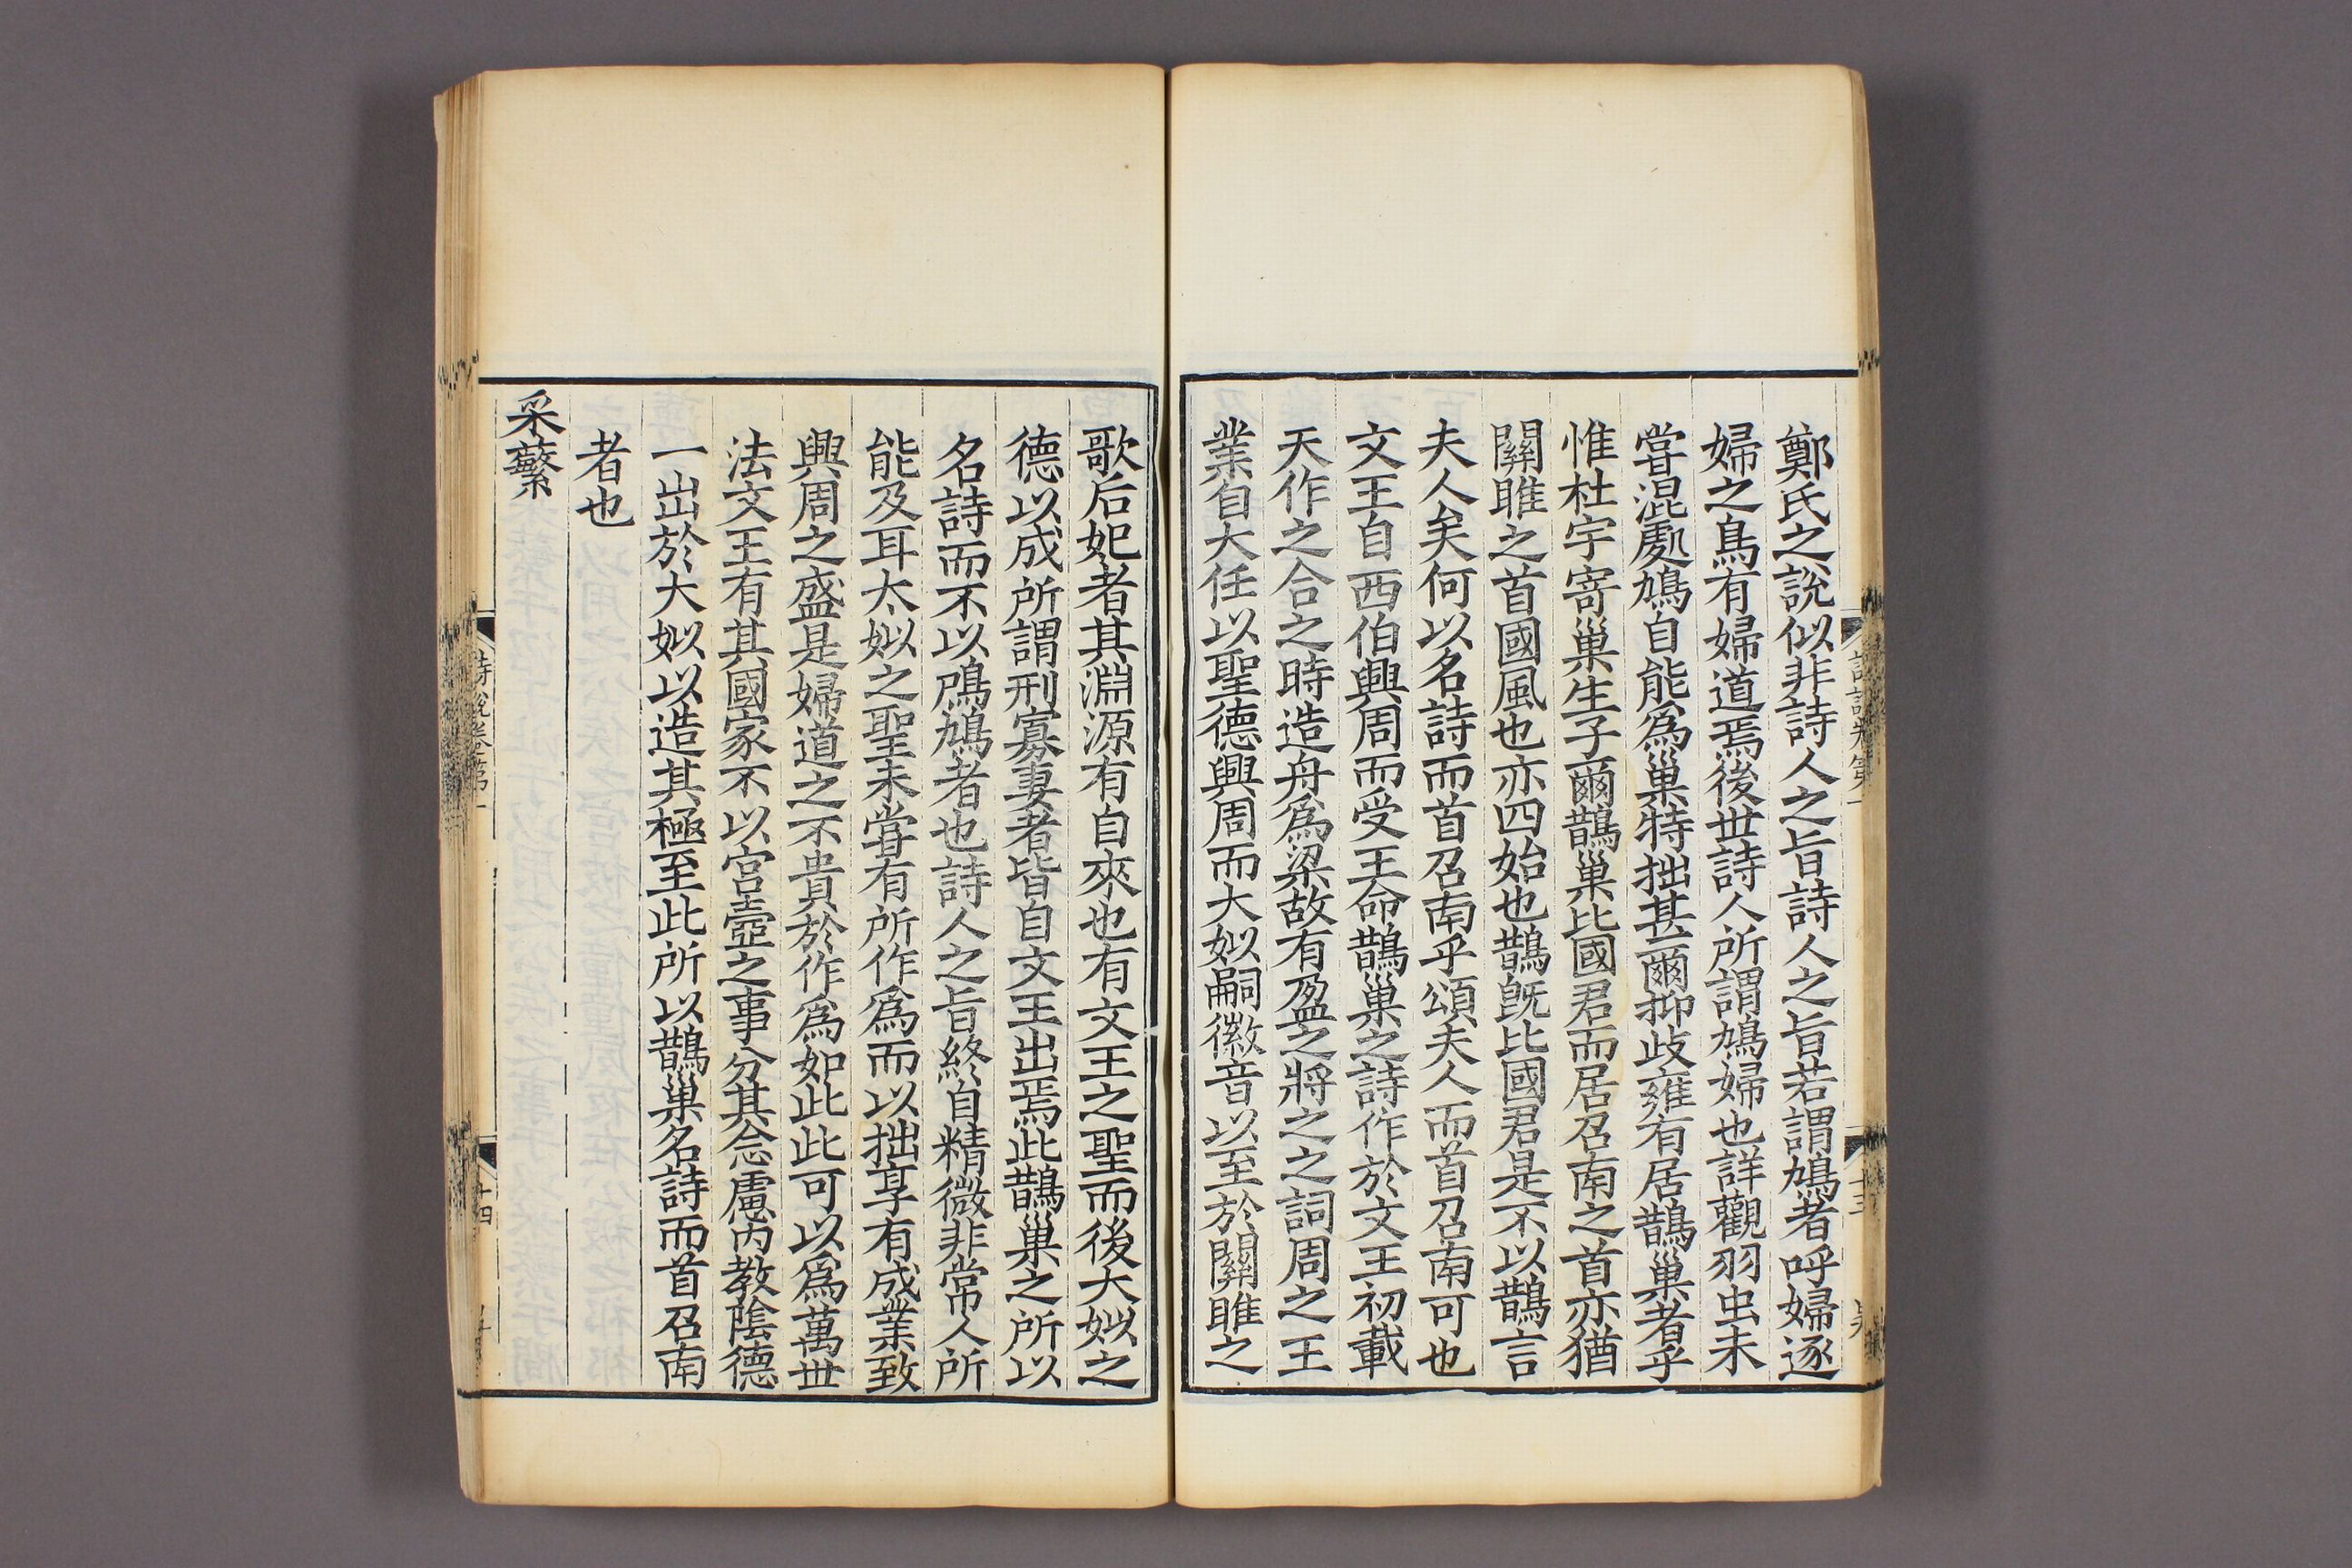 鄭氏之說似非詩人之旨詩人之旨若謂鳩者呼婦逐
婦之鳥有婦道焉後世詩人所謂鳩婦也詳觀羽虫未
甞混處鳩自能爲巢特拙甚爾抑歧雍有居鵲巢者乎
惟杜宇寄巢生子爾鵲巢比國君而居召南之首亦猶
關雎之首國風也亦四始也鵲旣比國君是不以鵲言
夫人矣何以名詩而首召南乎頌夫人而首召南可也
文王自西伯興周而受王命鵲巢之詩作於文王初載
天作之合之時造舟爲梁故有盈之將之之詞周之王
業自大任以聖德興周而大姒嗣徽音以至於關雎之
歌后妃者其淵源有自來也有文王之聖而後大姒之
德以成所謂刑寡妻者皆自文王出焉此鵲巢之所以
名詩而不以鳲鳩者也詩人之旨終自精微非常人所
能及耳太姒之聖未甞有所作爲而以拙享有成業致
興周之盛是婦道之不貴於作爲如此此可以爲萬世
法文王有其國家不以宮壼之事分其念慮内教陰德
一出於大姒以造其極至此所以鵲巢名詩而首召南
者也
采蘩
詩說卷第一
十四